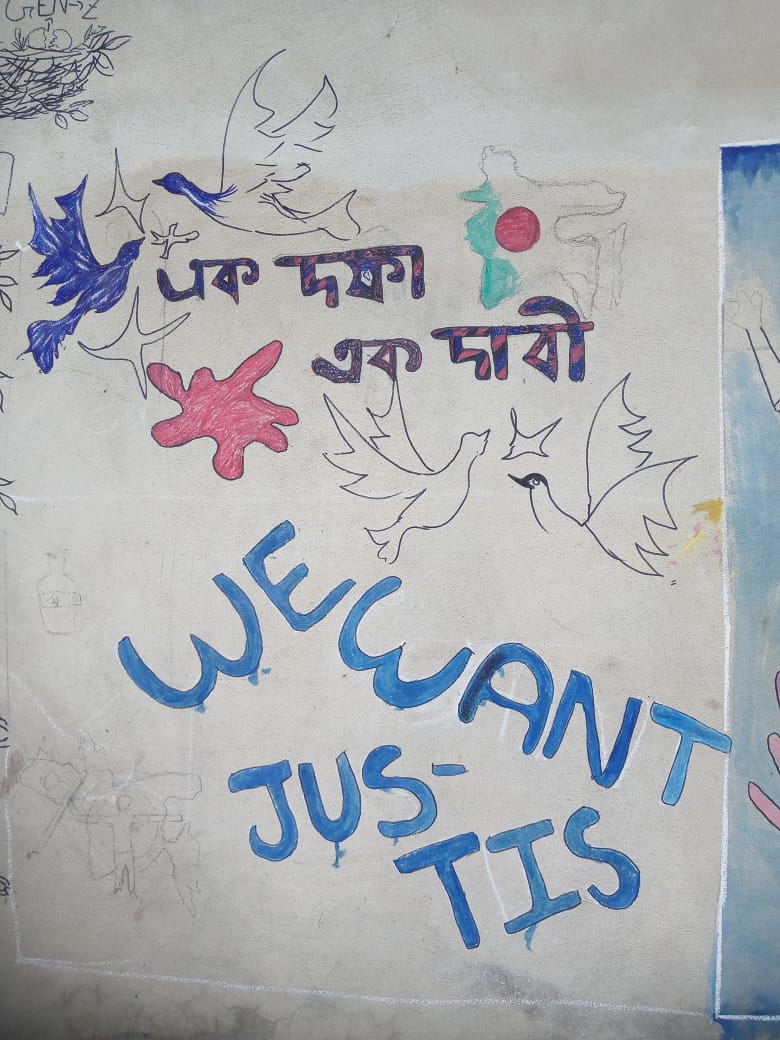 GEN-Z
এক দফা
এক দাবী
WE WANT
JUS-
TIS